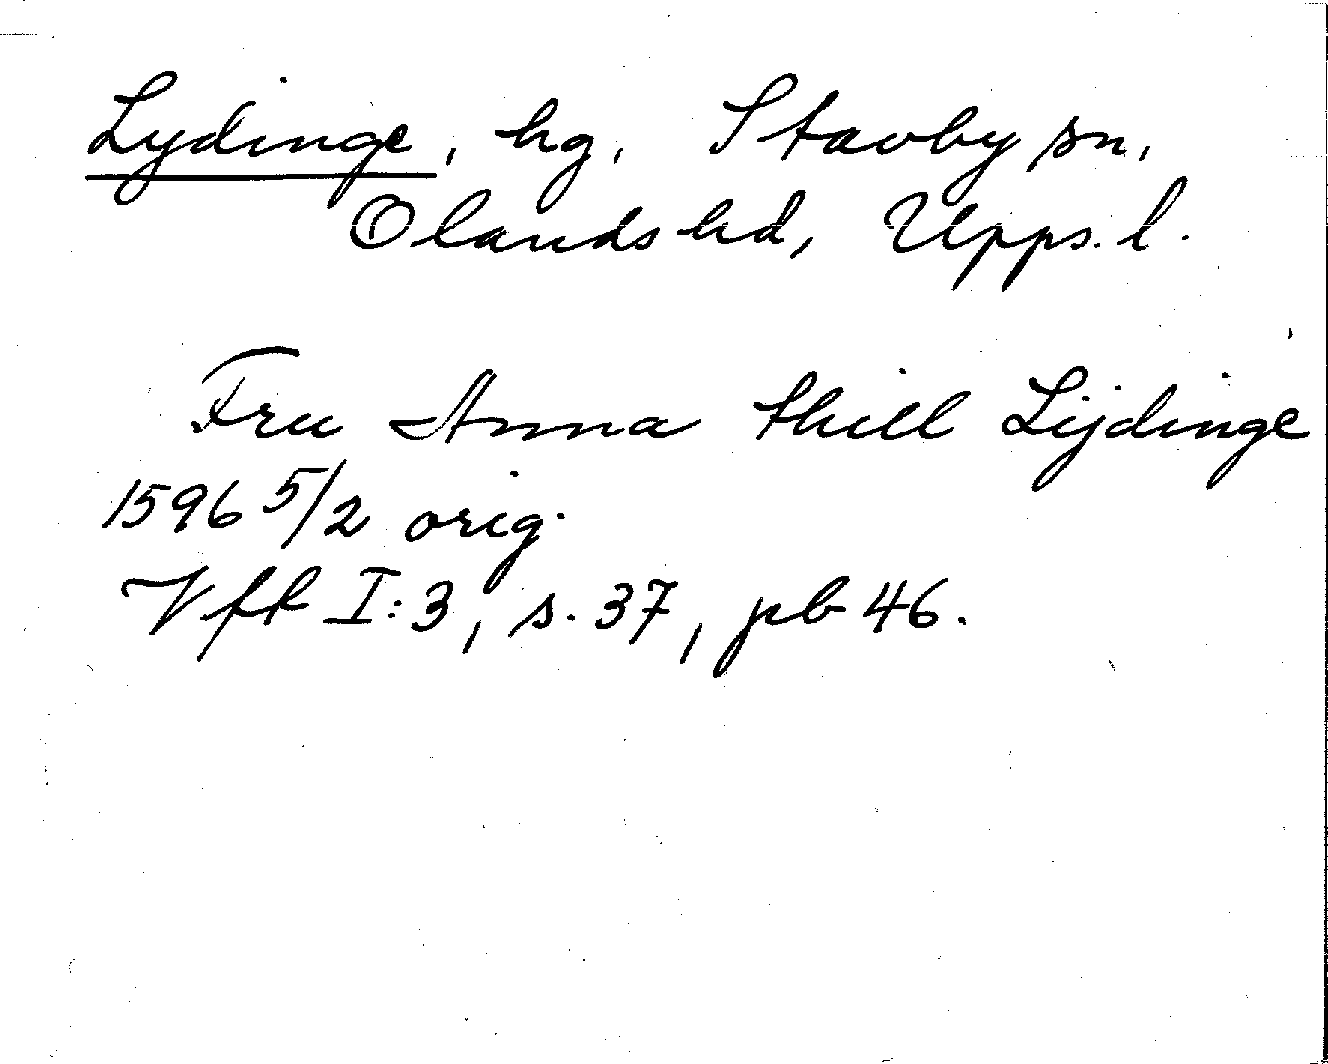 Lydinge, hg, Stavby sn,
Olands hd, Upps. l.
Fru Anna thill Lijdinge
1596 5/2 orig.
Vfk I:3, s. 37, pb 46.